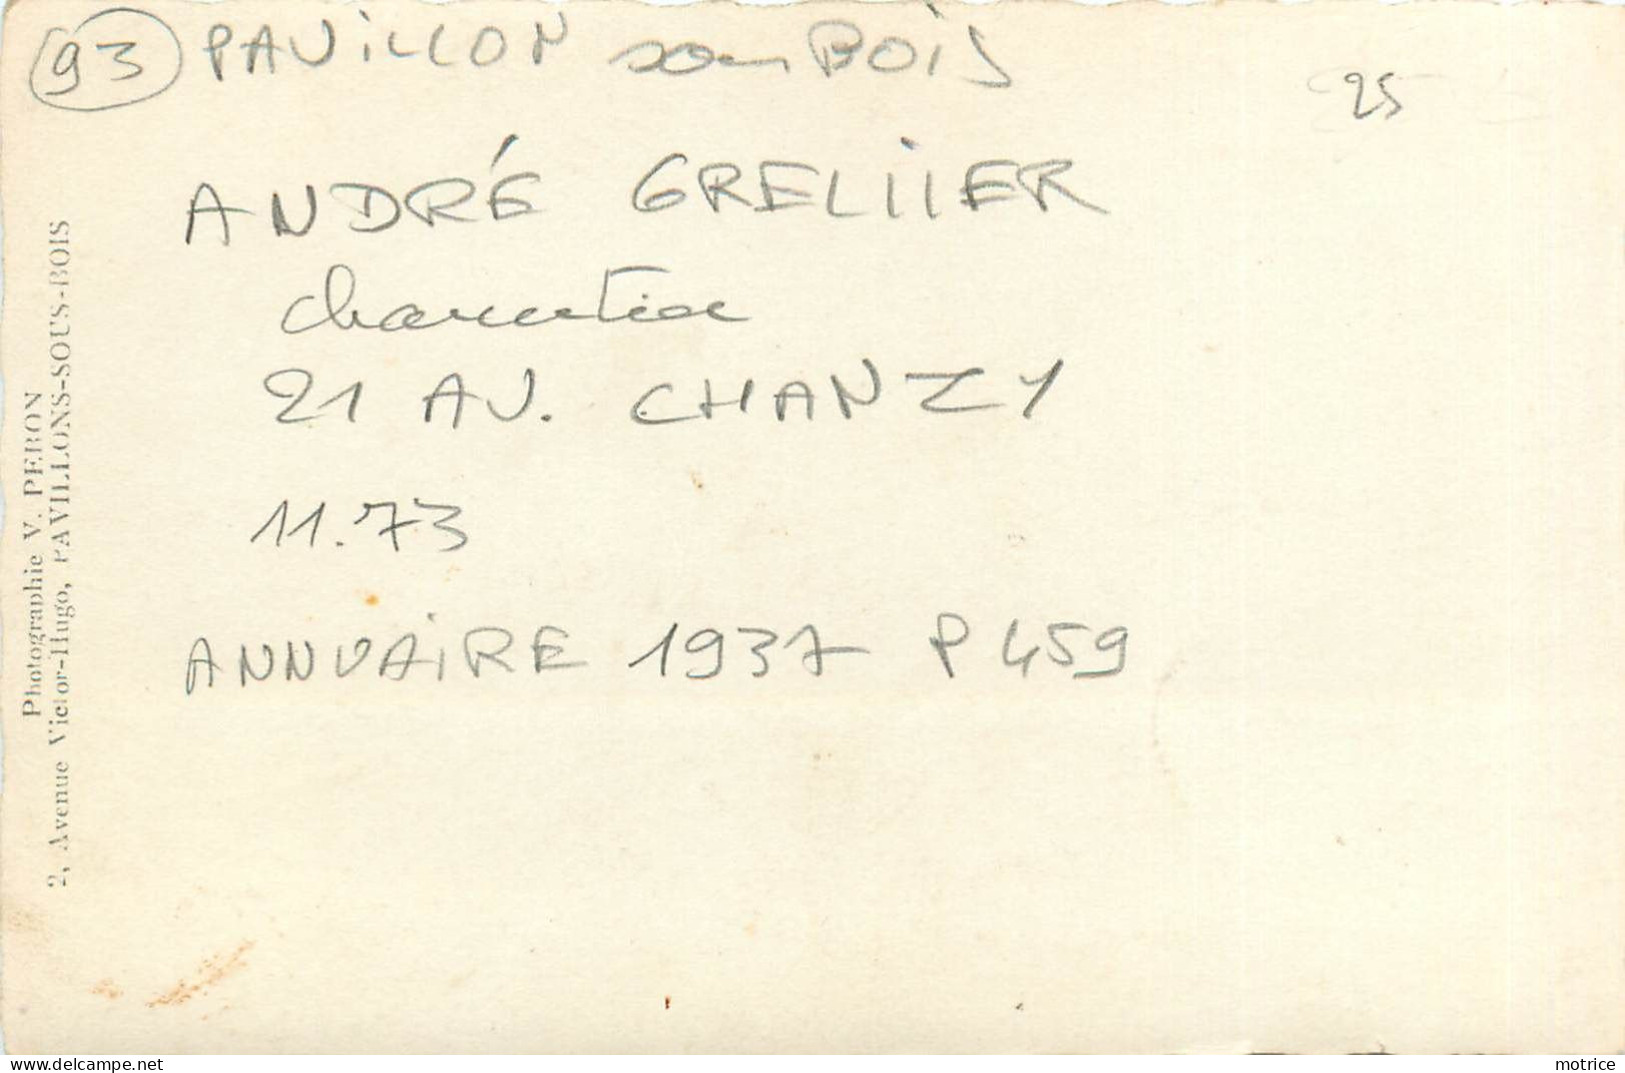 93 PAViLLON sous BOiS
25
ANDRÉ GRELliER
charcutier
21 AV. CHANZY
11.73
ANNUAiRE 1937 P 459
Photographie V. PERON
2, Avenue Victor-Hugo, PAVILLONS-SOUS-BOIS
www.delcampe.net
motrice